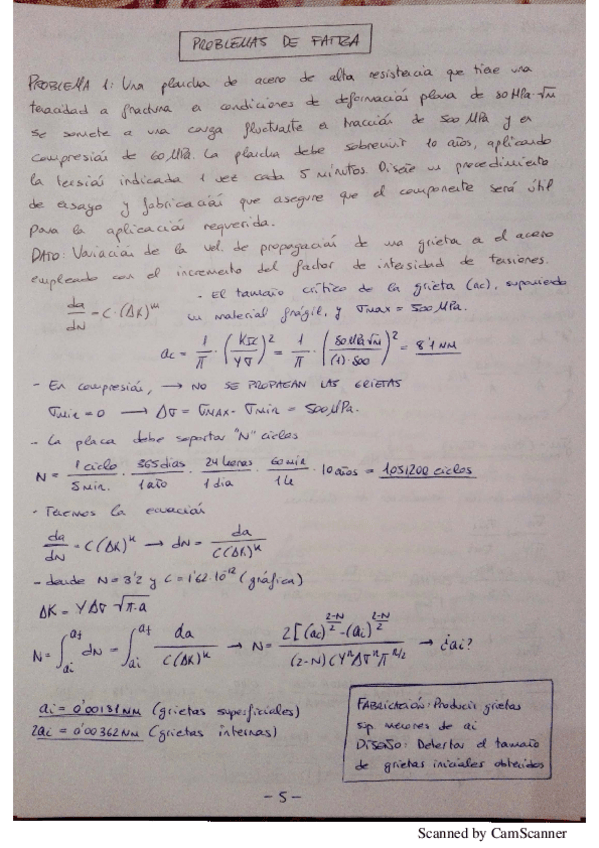 PROBLEMAS DE FATIGA
PROBLEMA 1: Una plancha de acero de alta resistencia que tiene una
tenacidad a fractura en condiciones de deformación plana de 80 MPa·√m
se somete a una carga fluctuante en tracción de 500 MPa y en
compresión de 60 MPa. La plancha debe sobrevivir 10 años, aplicando
la tensión indicada 1 vez cada 5 minutos. Diseñe un procedimiento
de ensayo y fabricación que asegure que el componente será útil
para la aplicación requerida.
DATO: Variación de la vel. de propagación de una grieta en el acero
empleado con el incremento del factor de intensidad de tensiones.
da/dN = C·(ΔK)^n - El tamaño crítico de la grieta (ac), suponiendo
un material frágil, y σmax = 500 MPa.
ac = 1/π · (KIC/Yσ)² = 1/π · (80 MPa√m/(1)·500)² = 8'1 mm
- En compresión, → NO SE PROPAGAN LAS GRIETAS
σmin = 0 → Δσ = σmax - σmin = 500 MPa.
- La placa debe soportar "N" ciclos
N = 1 ciclo/5 min. · 365 días/1 año · 24 horas/1 día · 60 min/1 h · 10 años = 1051200 ciclos
- Tenemos la ecuación
da/dN = C(ΔK)^n → dN = da/C(ΔK)^n
- donde N = 3'2 y C = 1'62·10^-12 (gráfica)
ΔK = YΔσ √π·a
N = ∫ai^af dN = ∫ai^af da/C(ΔK)^n → N = 2[(ac)^(2-N/2) - (ai)^(2-N/2)]/(2-N)CY^nΔσ^nπ^(n/2) → ¿ai?
ai = 0'00131 mm (grietas superficiales)
2ai = 0'00362 mm (grietas internas)
FABRICACIÓN: Producir grietas
sup. menores de ai
DISEÑO: Detectar el tamaño
de grietas iniciales obtenidos
- 5 -
Scanned by CamScanner